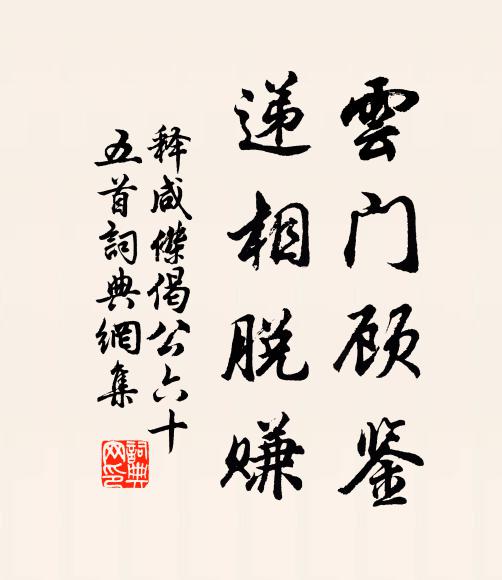 雲门顾鉴
递相脱赚
释咸傑偈公六十
五首詞典網集
詞典
网印